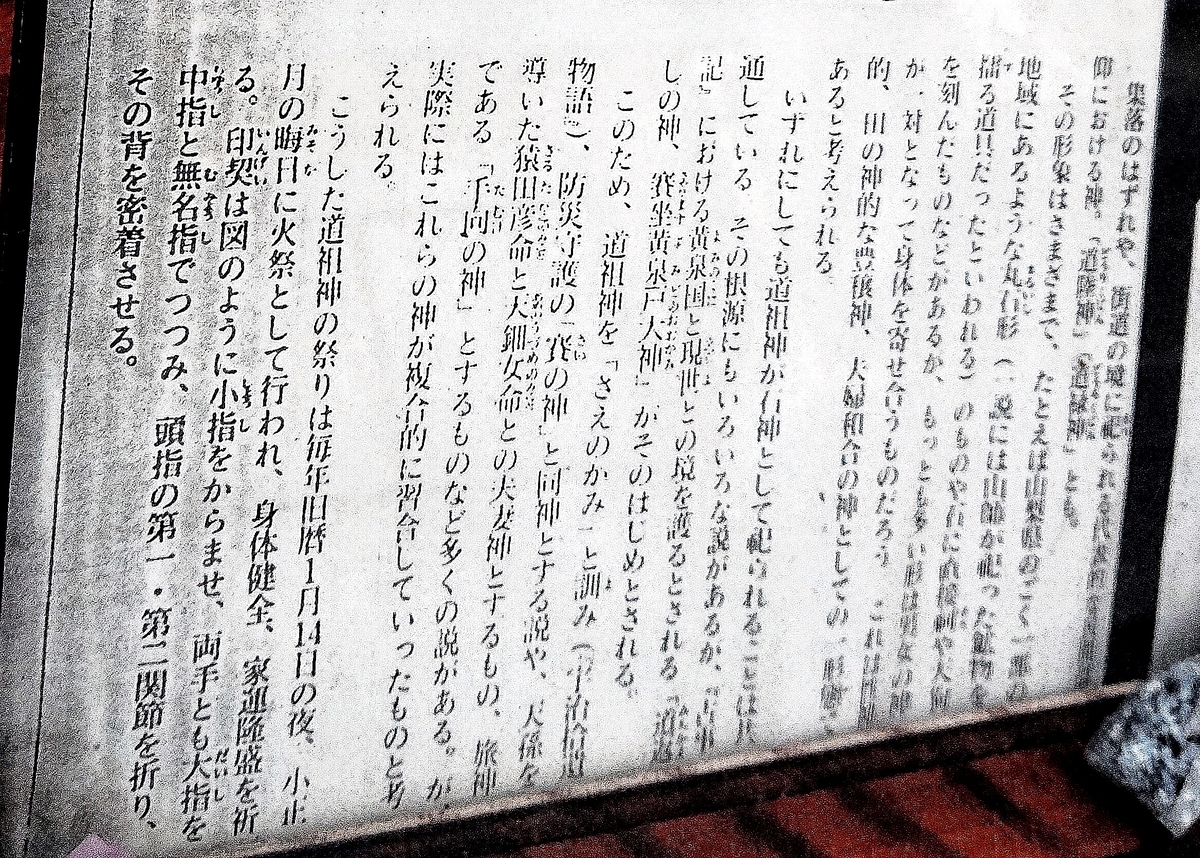 集落のはずれや、街道の境に祀られる代表的な
仰における神。「道陸神」「道禄神」とも。
その形象はさまざまで、たとえば山梨県のごく一部の
地域にあるような丸石形（一説には山師が祀った鉱物を
掘る道具だったといわれる）のものや石に直接祠や大師
を刻んだものなどがあるが、もっとも多い形は男女の神
が一対となって身体を寄せ合うものだろう。これは
的、田の神的な豊穣神、夫婦和合の神としての一形態で
あると考えられる。
いずれにしても道祖神が石神として祀られることは共
通している。その根源にもいろいろな説があるが、『古事
記』における黄泉国と現世との境を護るとされる「道返
しの神、塞坐黄泉戸大神」がそのはじめとされる。
このため、道祖神を「さえのかみ」と訓み（『宇治拾遺
物語』）、防災守護の「賽の神」と同神とする説や、天孫を
導いた猿田彦命と天鈿女命との夫妻神とするもの、旅神
である「手向の神」とするものなど多くの説がある。が、
実際にはこれらの神が複合的に習合していったものと考
えられる。
こうした道祖神の祭りは毎年旧暦1月14日の夜、小正
月の晦日に火祭として行われ、身体健全、家運隆盛を祈
る。印契は図のように小指をからませ、両手とも大指を
中指と無名指でつつみ、頭指の第一・第二関節を折り、
その背を密着させる。